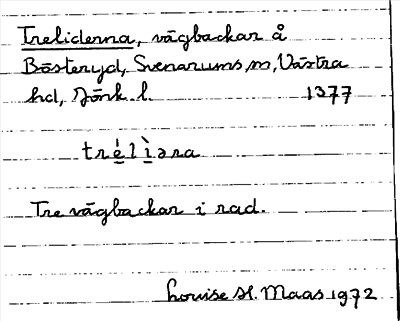 Treliderna, vägbackar å
Bösteryd, Svenarums sn, Västra
hd, Jönk. l. 1377
tré̲lì̲əra
Tre vägbackar i rad.
Louise H. Maas 1972